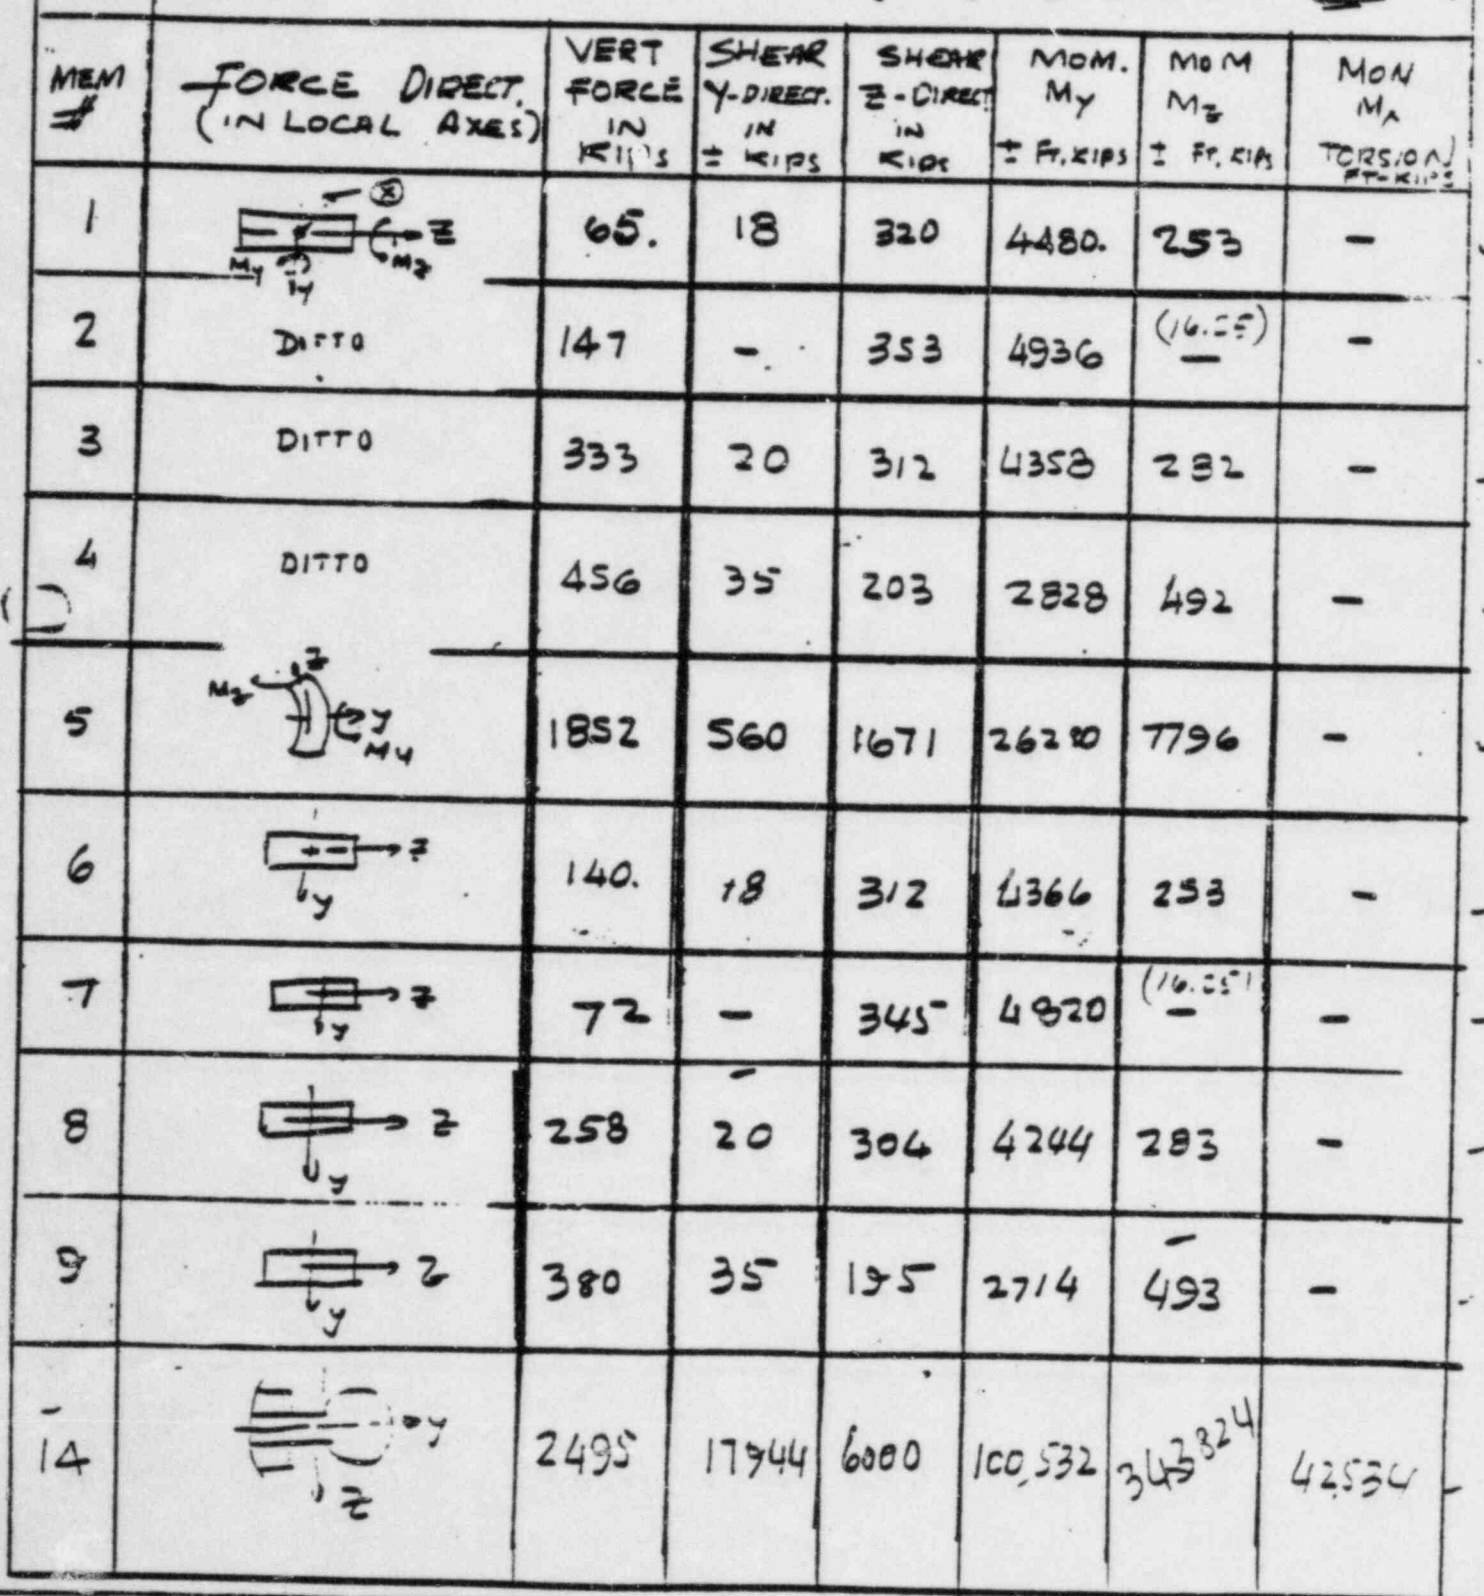 MEM # | FORCE DIRECT. (IN LOCAL AXES) | VERT FORCE IN KIPS | SHEAR Y-DIRECT. IN ± KIPS | SHEAR Z-DIRECT IN KIPS | MOM. My ± FT. KIPS | MOM Mz ± FT. KIPS | MON TORSION FT-KIPS
1 | X Z My y Mz | 65. | 18 | 320 | 4480. | 253 | -
2 | DITTO | 147 | - | 353 | 4936 | - | -
3 | DITTO | 333 | 20 | 312 | 4358 | 282 | -
4 | DITTO | 456 | 35 | 203 | 2828 | 492 | -
5 | Z Mz y My | 1852 | 560 | 1671 | | 7796 | -
6 | Z y | 140. | 18 | 312 | 4366 | 253 | -
7 | Z y | 72 | - | 345 | 4820 | - | -
8 | Z y | 258 | 20 | 304 | 4244 | 283 | -
9 | Z y | 380 | 35 | 195 | 2714 | 493 | -
14 | y Z | 2495 | 17944 | 6000 | 100,532 | | 42534